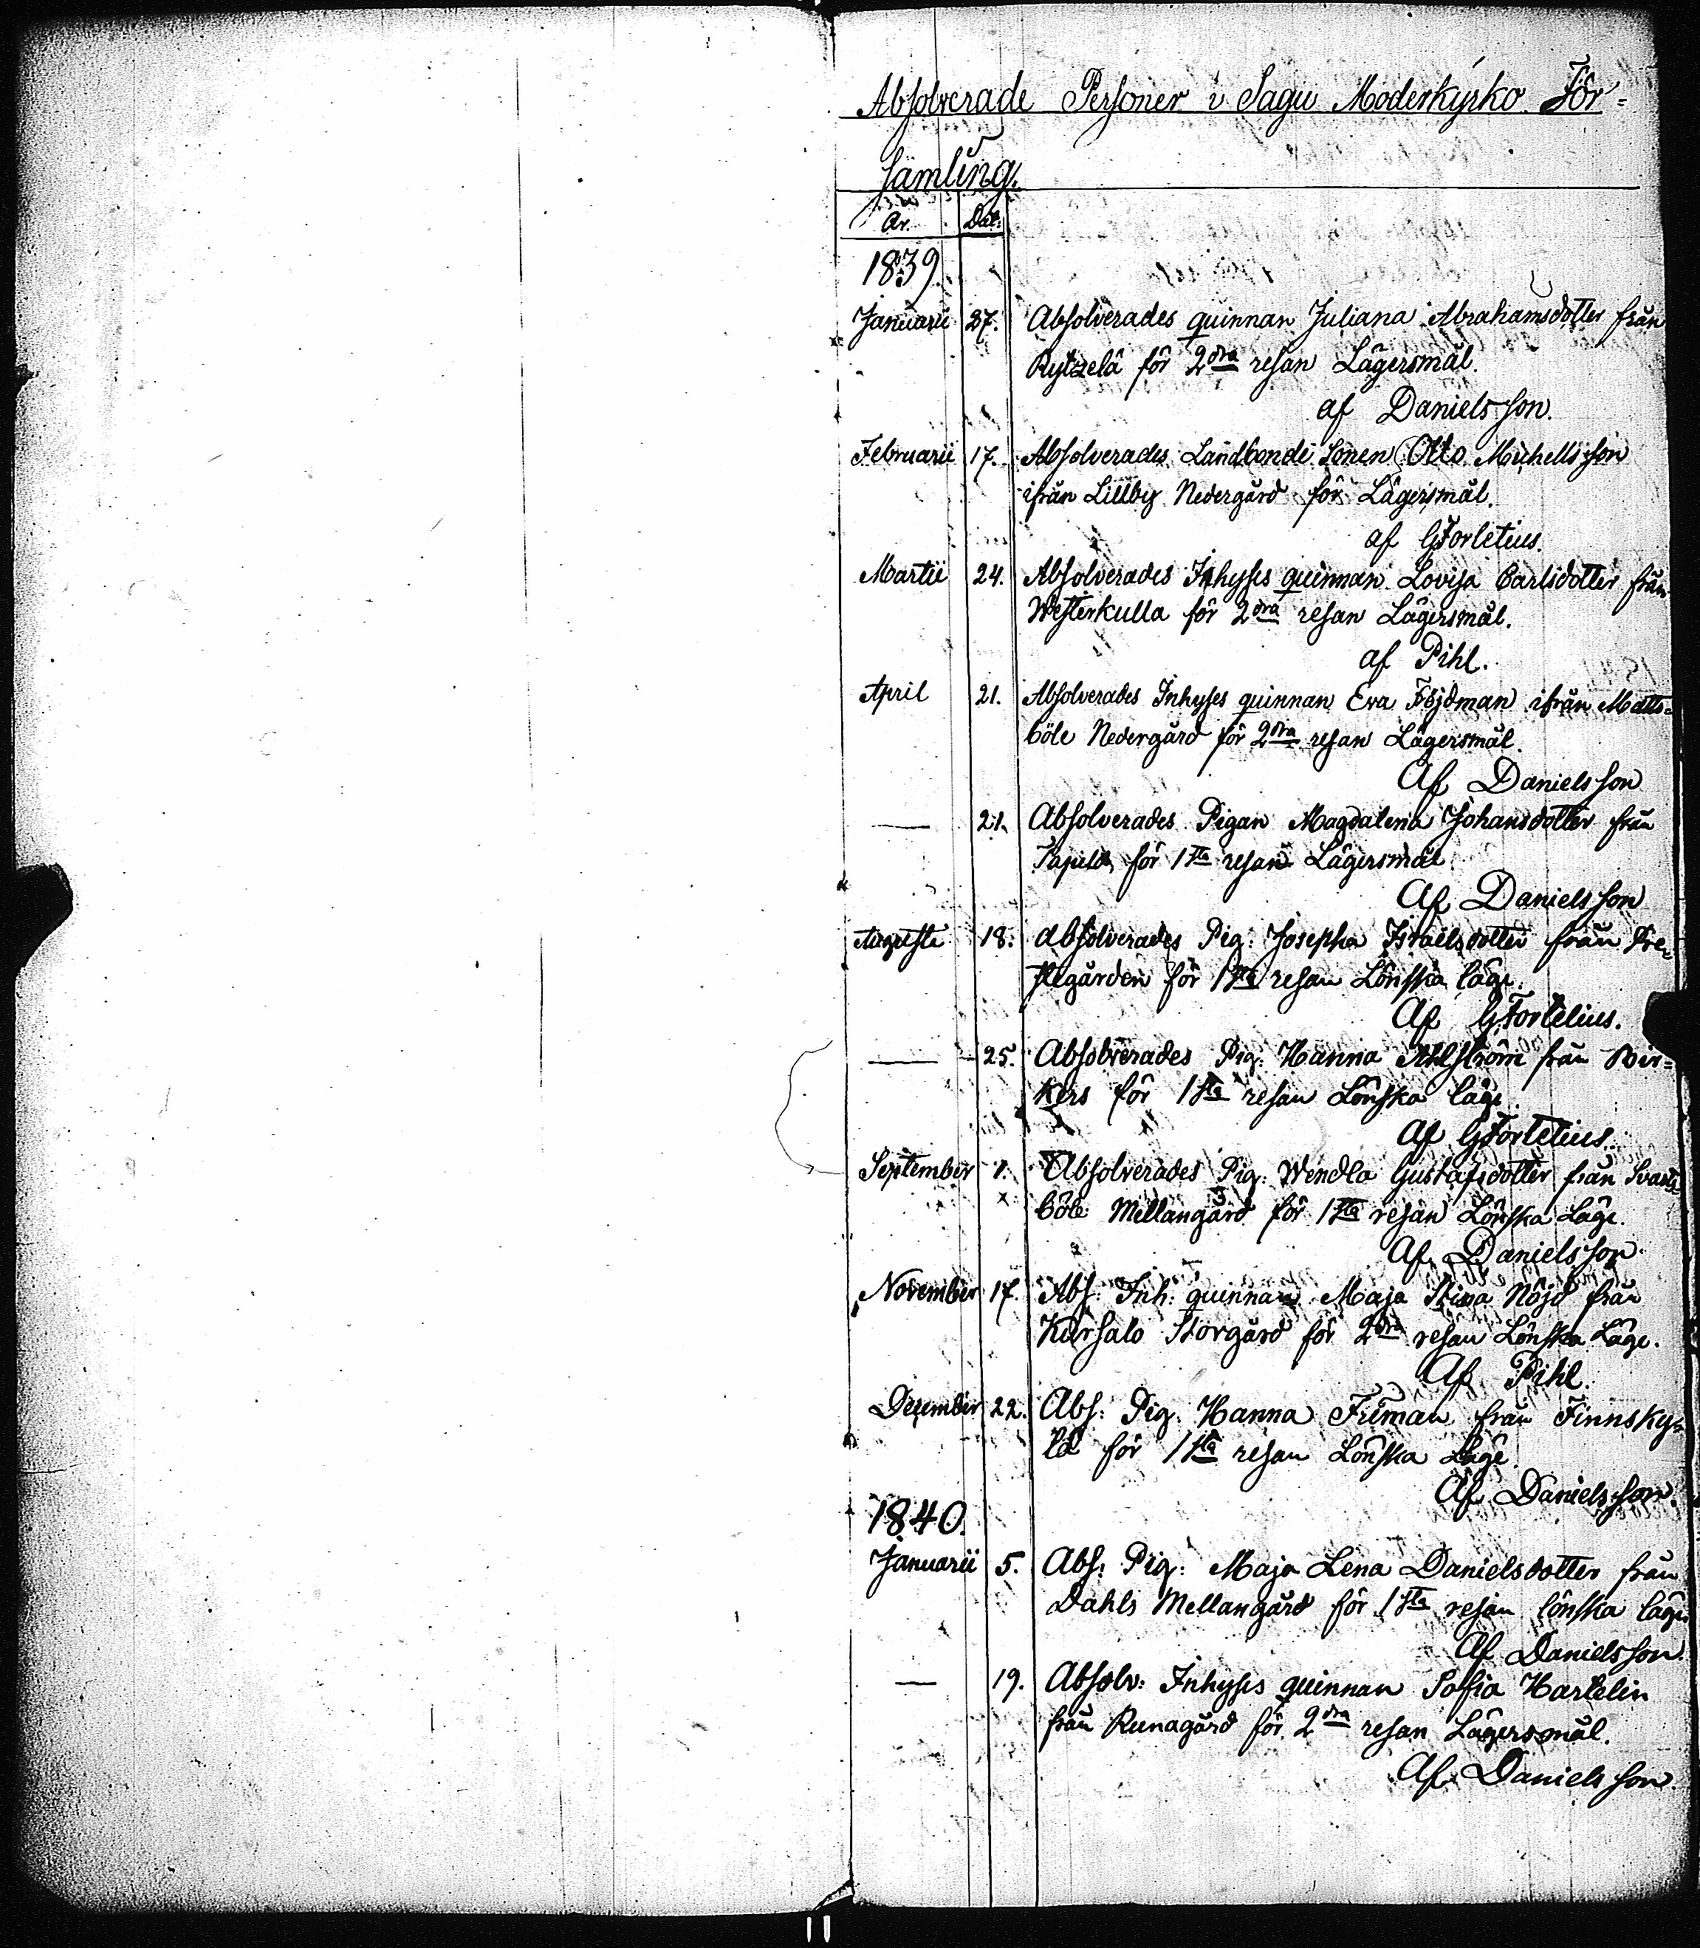 Absolverade Personer i Sagu Moderkyrko För-
samling.
År. Dat:
1839.
Januarii 27. Absolverades quinnan Juliana Abrahamsdotter från
Rytzelä för 2dra resan Lägersmål.
af Danielsson.
Februarii 17. Absolverades Landbonde Sonen Otto Michellsson
ifrån Lillby Nedergård för Lägersmål.
af GFortelius.
Martii 24. Absolverades Inhyses quinnan Lovisa Carlsdotter från
Westerkulla för 2dra resan Lägersmål.
af Pihl.
April 21. Absolverades Inhyses quinnan Eva Föjdman ifrån Matts-
böle Nedergård för 2dra resan Lägersmål.
Af Danielsson
— 21. Absolverades Pigan Magdalena Johansdotter från
för 1sta resan Lägersmål.
Af Danielsson
Augusti 18. Absolverades Pig: Josepha Israelsdotter från Pre-
stegården för 1sta resan Lönska läge.
Af GFortelius.
— 25. Absolverades Pig: Hanna Ahlström från Bir-
kers för 1sta resan Lönska läge.
Af GFortelius.
September 1. Absolverades Pig: Wendla Gustafsdotter från Svarte
böle Mellangård för 1sta resan Lönska Läge.
Af Danielsson.
November 17. Abs: Inh: quinnan Maja Stina Nöjd från
Kärsalo Storgård för 2dra resan Lönska Läge.
Af Pihl
December 22. Abs: Pig: Hanna Friman från Finnsky-
lä för 1sta resan Lönska Läge.
Af Danielsson.
1840.
Januarii 5. Abs: Pig: Maja Lena Danielsdotter från
Dahls Mellangård för 1sta resan lönska läge
Af Danielsson.
— 19. Absolv: Inhyses quinnan Sofia Hartelin
från Runagård för 2dra resan Lägersmål.
Af Danielsson